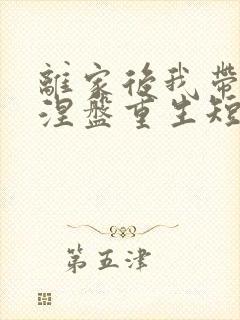 離家後我帶
涅盤重生短
第五津